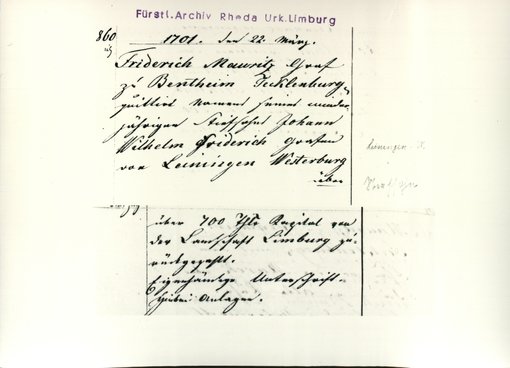 Fürstl. Archiv Rheda Urk. Limburg
860
1701. den 22. März.
Friderich Mauritz Graf
zu Bentheim Tecklenburg,
quittirt Namens seines minder-
jährigen Stiefsohns Johann
Wilhelm Friderich Grafen
von Leiningen Westerburg
über
über 700 Thlr Kapital von
der Landschaft Limburg zu-
rückgezahlt.
Eigenhändige Unterschrift.
Hiebei Anlagen.
Leiningen